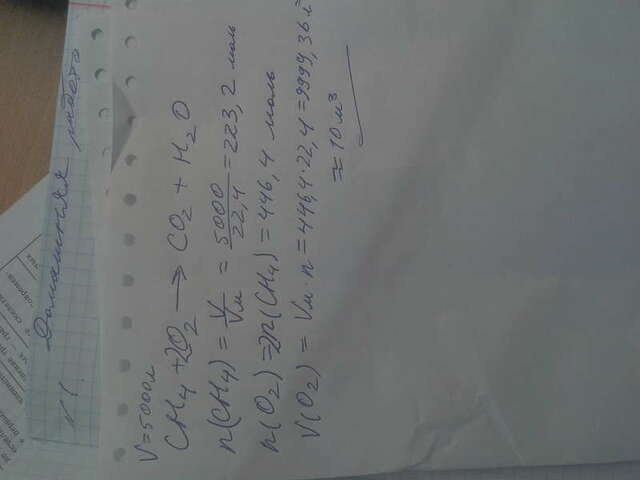 Домашняя работа
№1.
V=5000л
CH₄ + 2O₂ → CO₂ + H₂O
n(CH₄) = V/Vм = 5000/22,4 = 223,2 моль
n(O₂) = 2n(CH₄) = 446,4 моль
V(O₂) = Vм · n = 446,4 · 22,4 = 9999,36 л
≈ 10 м³